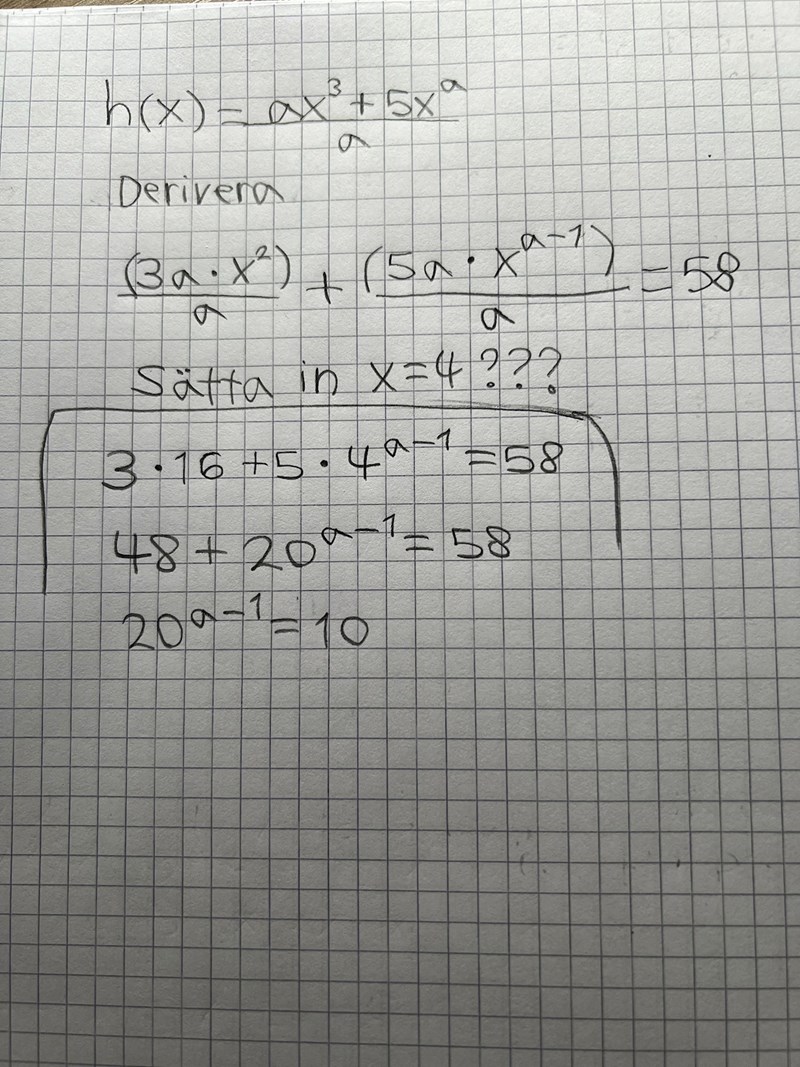 h(x) = (ax³ + 5xᵃ)/a
Derivera
(3a · x²)/a + (5a · xᵃ⁻¹)/a = 58
Sätta in x=4???
3 · 16 + 5 · 4ᵃ⁻¹ = 58
48 + 20ᵃ⁻¹ = 58
20ᵃ⁻¹ = 10